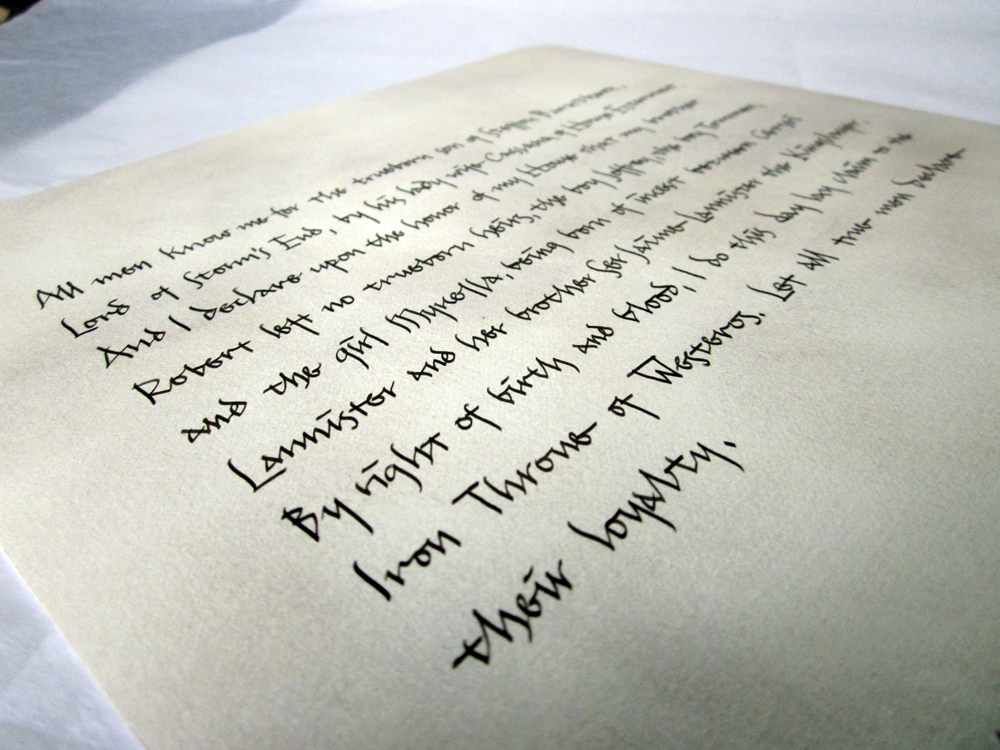 All men know me for the trueborn son of Steffon Baratheon,
Lord of Storm's End, by his lady wife Cassana of House Estermont
And I declare upon the honor of my House that my brother
Robert left no trueborn heirs, the boy Joffrey, the boy Tommen
and the girl Myrcella, being born of incest between Cersei
Lannister and her brother Ser Jaime Lannister the Kingslayer.
By right of birth and blood, I do this day lay claim to the
Iron Throne of Westeros. Let all true men declare
their loyalty.